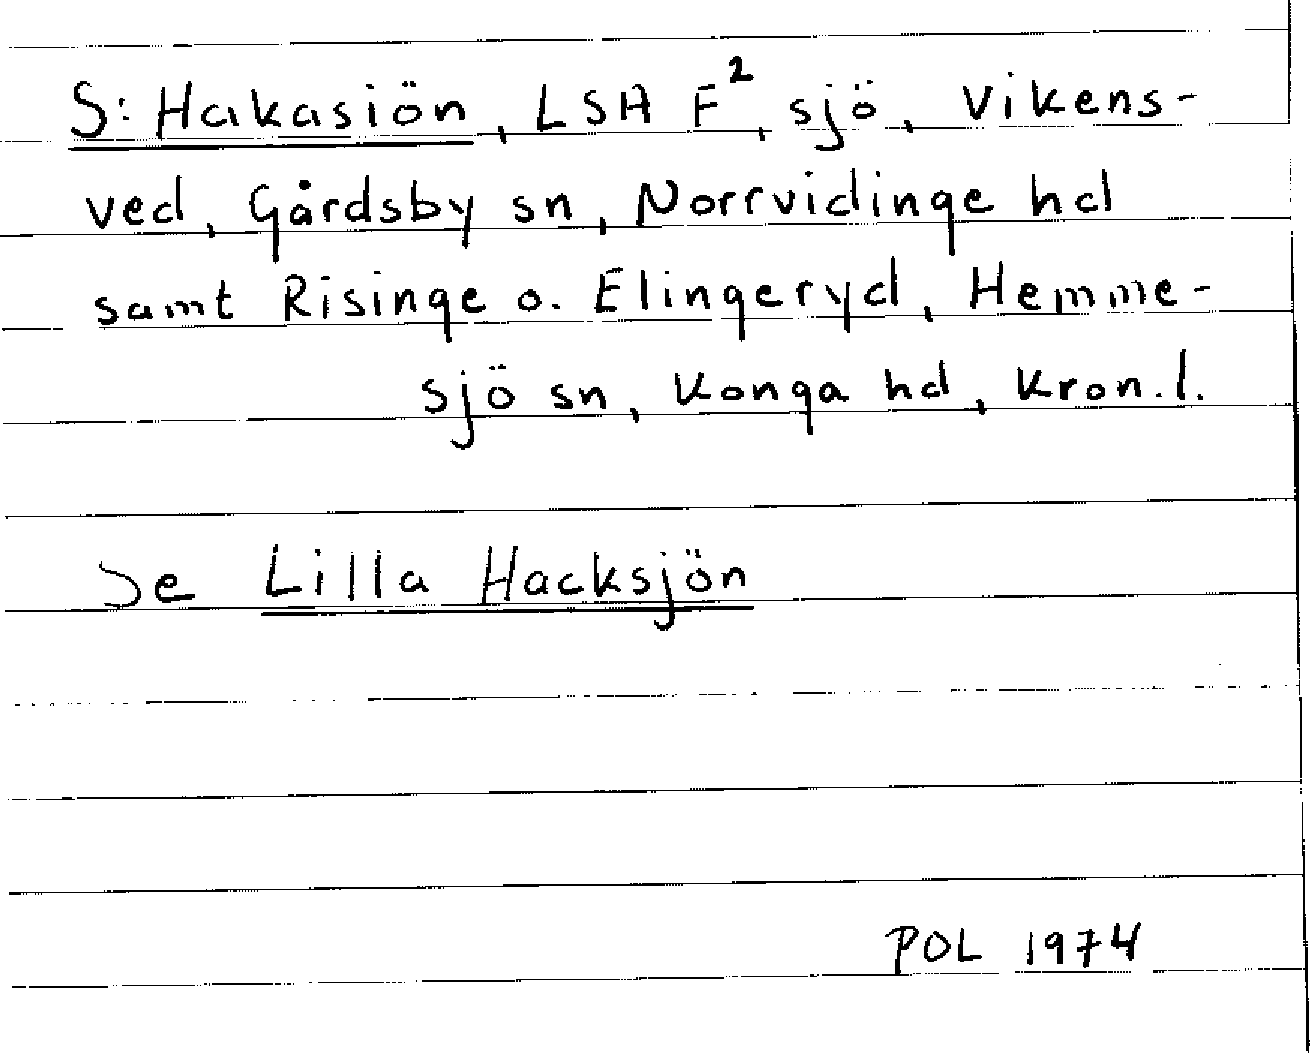 S: Hakasiön, LSA F², sjö, Vikens-
ved, Gårdsby sn, Norrvidinge hd
samt Risinge o. Elingeryd, Hemme-
sjö sn, Konga hd, Kron. l.
Se Lilla Hacksjön
POL 1974